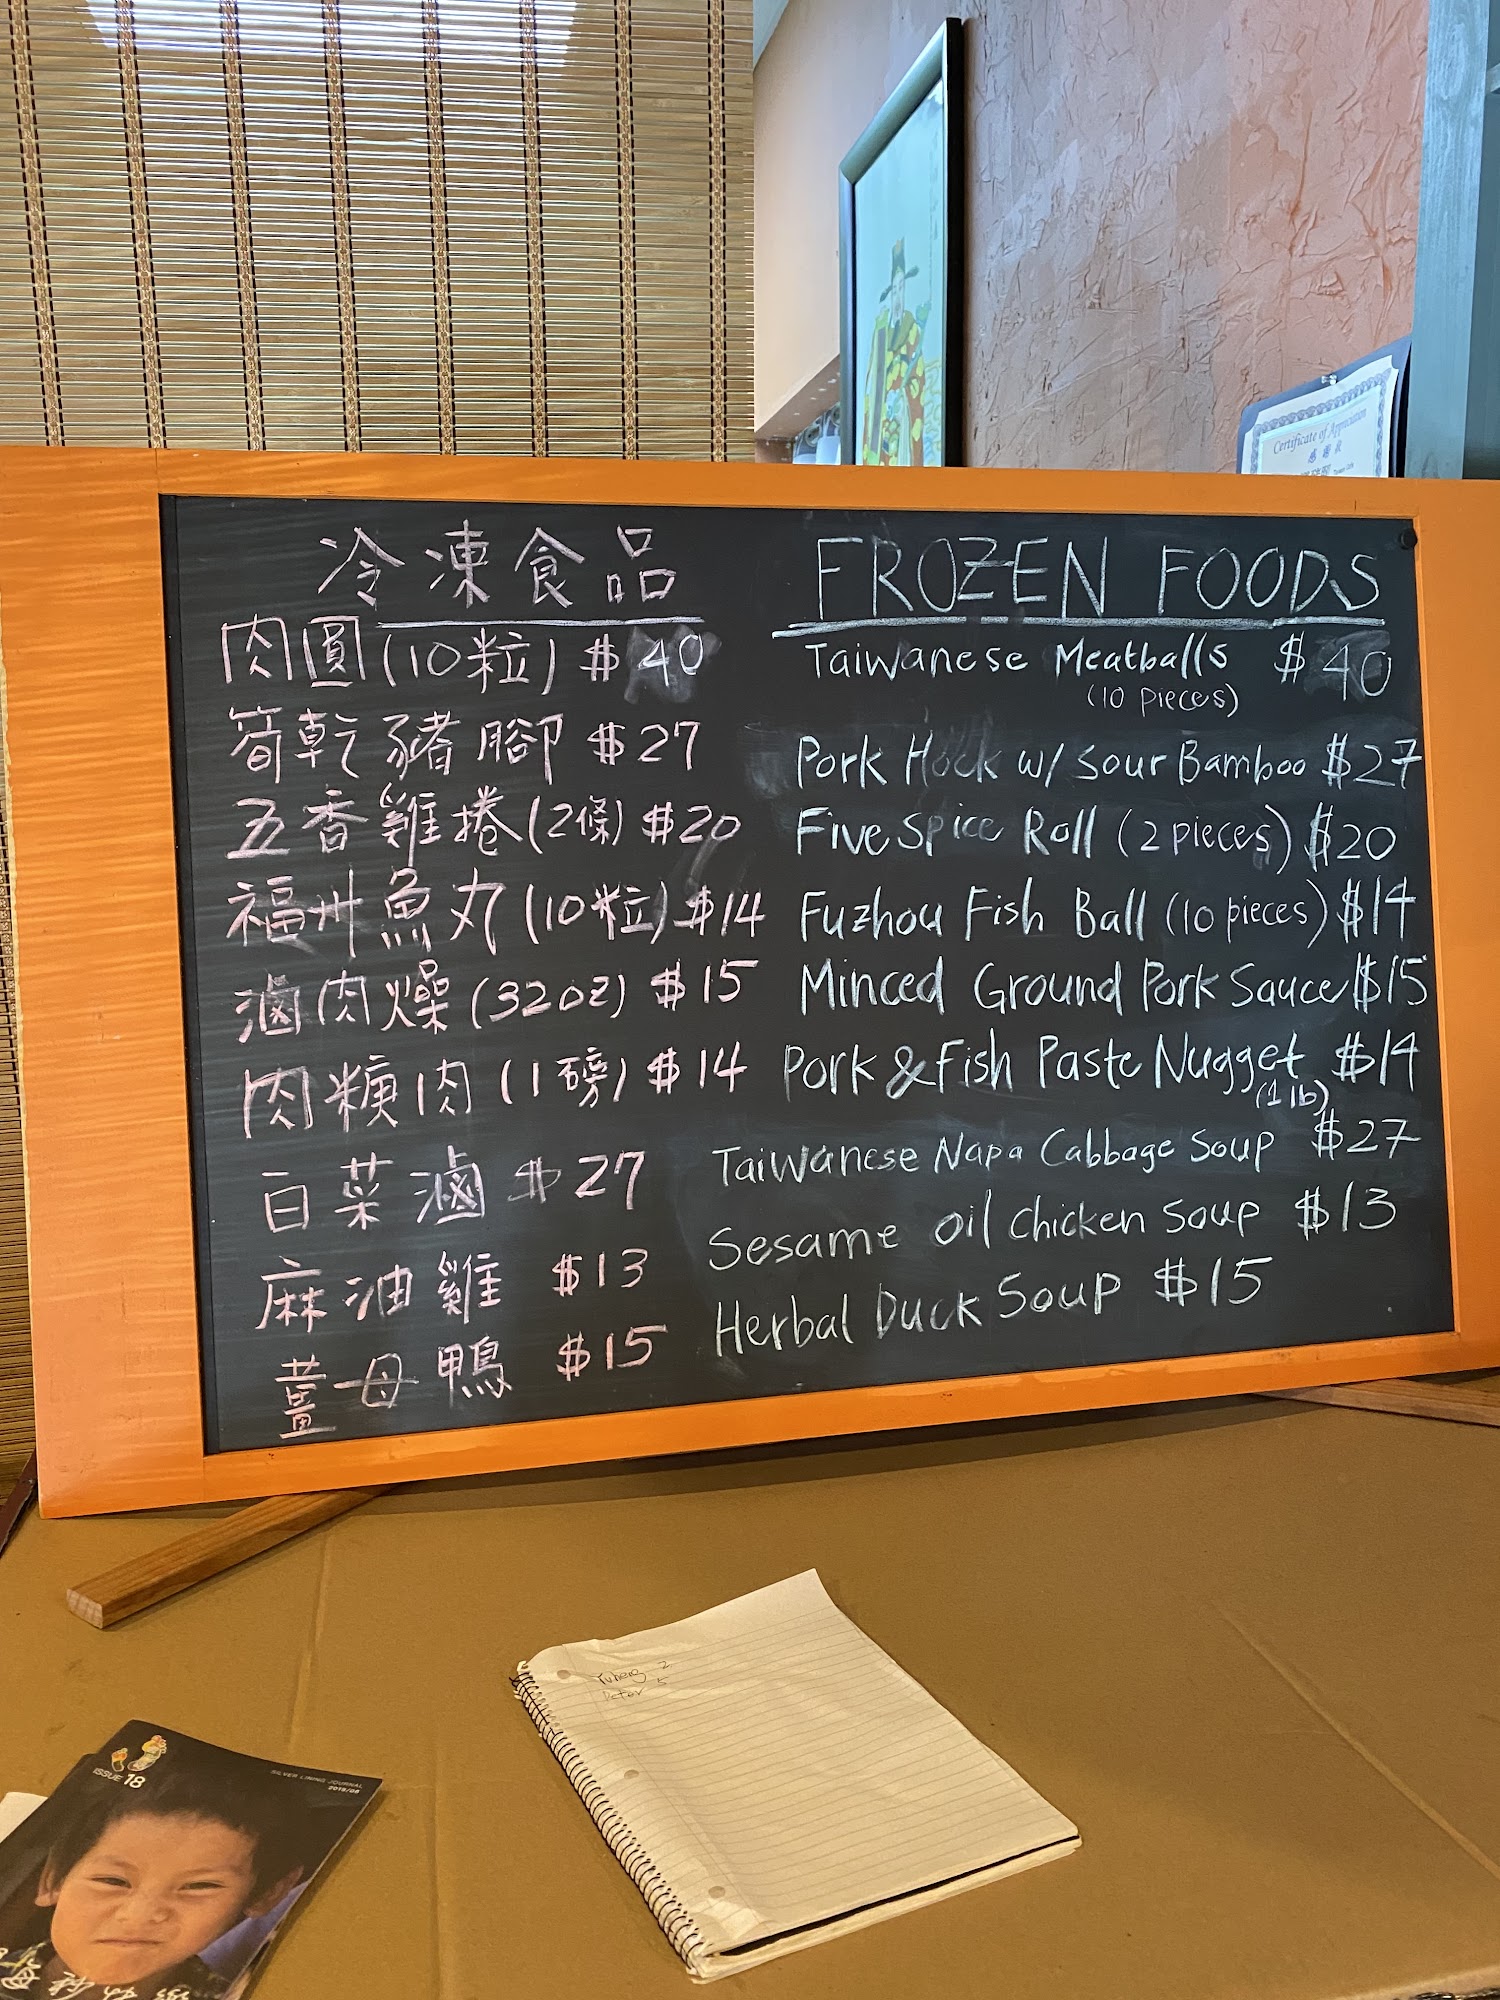 Certificate of Appreciation
冷凍食品
肉圓(10粒) $40
筍乾豬腳 $27
五香雞捲(2條) $20
福州魚丸(10粒) $14
滷肉燥(32oz) $15
肉羹肉(1磅) $14
白菜滷 $27
麻油雞 $13
薑母鴨 $15
FROZEN FOODS
Taiwanese Meatballs $40
(10 pieces)
Pork Hock w/ Sour Bamboo $27
Five Spice Roll (2 pieces) $20
Fuzhou Fish Ball (10 pieces) $14
Minced Ground Pork Sauce $15
Pork & Fish Paste Nugget $14
(1 lb)
Taiwanese Napa Cabbage Soup $27
Sesame Oil Chicken Soup $13
Herbal Duck Soup $15
Yuheng 2
5
ISSUE 18
SILVER LINING JOURNAL
2019/08